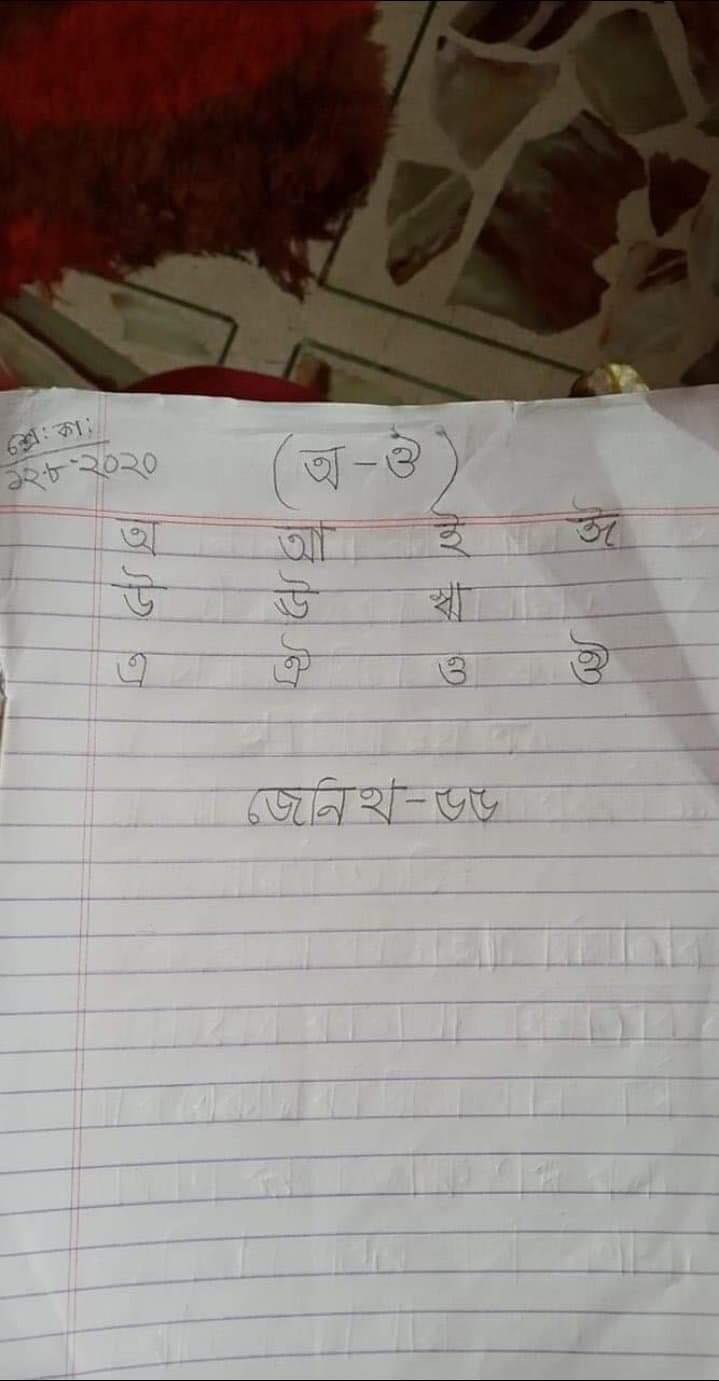 শ্রে: কা:
১২-৮-২০২০
(অ - ঔ)
অ আ ই ঈ
উ ঊ ঋ
এ ঐ ও ঔ
জেনিথ - ৬৬